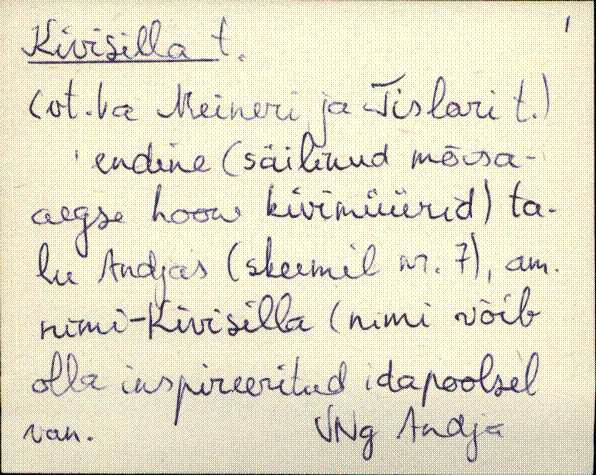 1
Kivisilla t.
(vt. ka Meineri ja Tislari t.)
endine (säilinud mõisa-
aegse hoone kivimüürid) ta-
lu Andjas (skeemil nr. 7), am.
nimi-Kivisilla (nimi võib
olla inspireeritud idapoolsel
van. VNg Andja